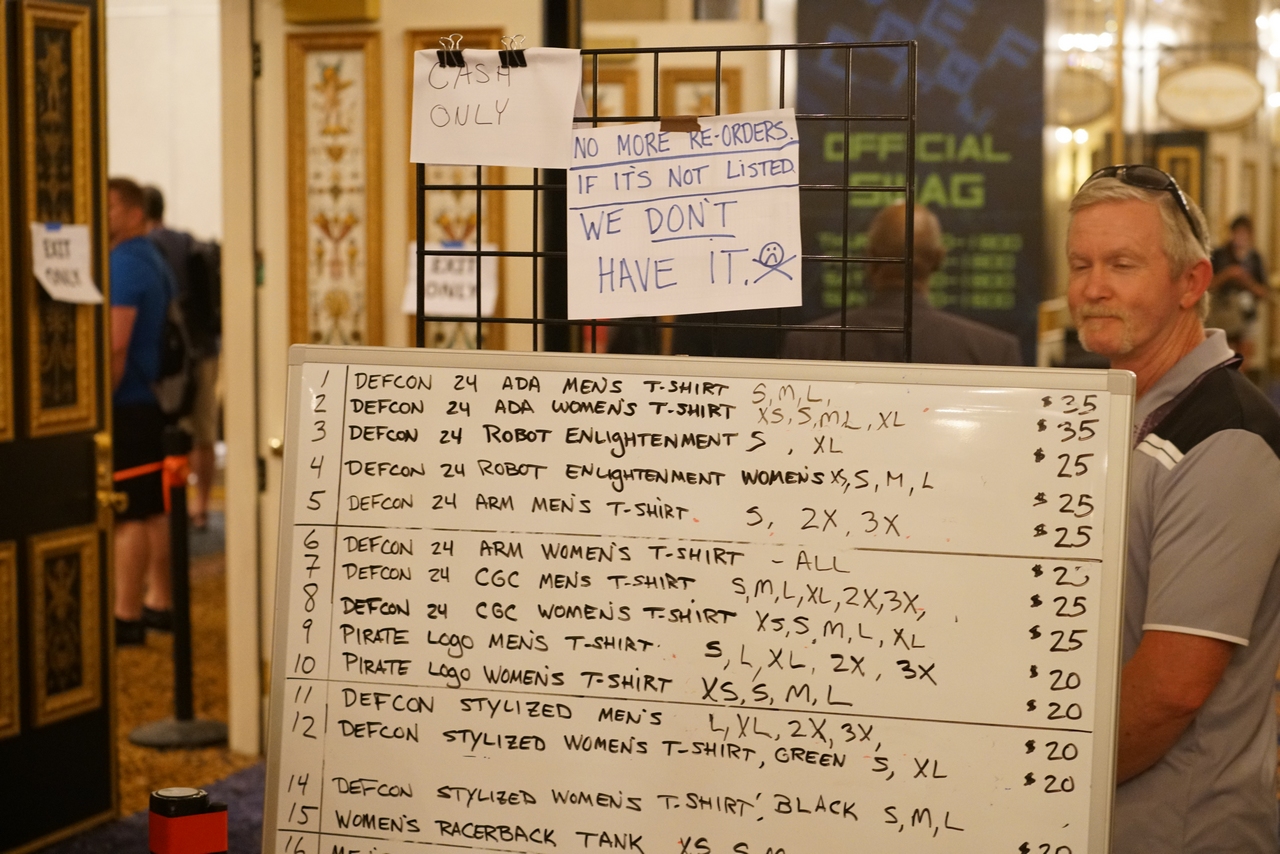 CASH
ONLY
NO MORE RE-ORDERS.
IF IT'S NOT LISTED
WE DON'T
HAVE IT.
EXIT
ONLY
EXIT
ONLY
OFFICIAL
SWAG
1 DEFCON 24 ADA MEN'S T-SHIRT S, M, L, $35
2 DEFCON 24 ADA WOMEN'S T-SHIRT XS, S, M, L, XL $35
3 DEFCON 24 ROBOT ENLIGHTENMENT S, XL $25
4 DEFCON 24 ROBOT ENLIGHTENMENT WOMEN'S XS, S, M, L $25
5 DEFCON 24 ARM MEN'S T-SHIRT S, 2X, 3X $25
6 DEFCON 24 ARM WOMEN'S T-SHIRT - ALL
7 DEFCON 24 CGC MEN'S T-SHIRT S, M, L, XL, 2X, 3X, $25
8 DEFCON 24 CGC WOMEN'S T-SHIRT XS, S, M, L, XL $25
9 PIRATE LOGO MEN'S T-SHIRT. S, L, XL, 2X, 3X $20
10 PIRATE LOGO WOMEN'S T-SHIRT XS, S, M, L $20
11 DEFCON STYLIZED MEN'S L, XL, 2X, 3X, $20
12 DEFCON STYLIZED WOMEN'S T-SHIRT, GREEN S, XL $20
14 DEFCON STYLIZED WOMEN'S T-SHIRT, BLACK S, M, L
15 WOMEN'S RACERBACK TANK XS, S, M $20
16